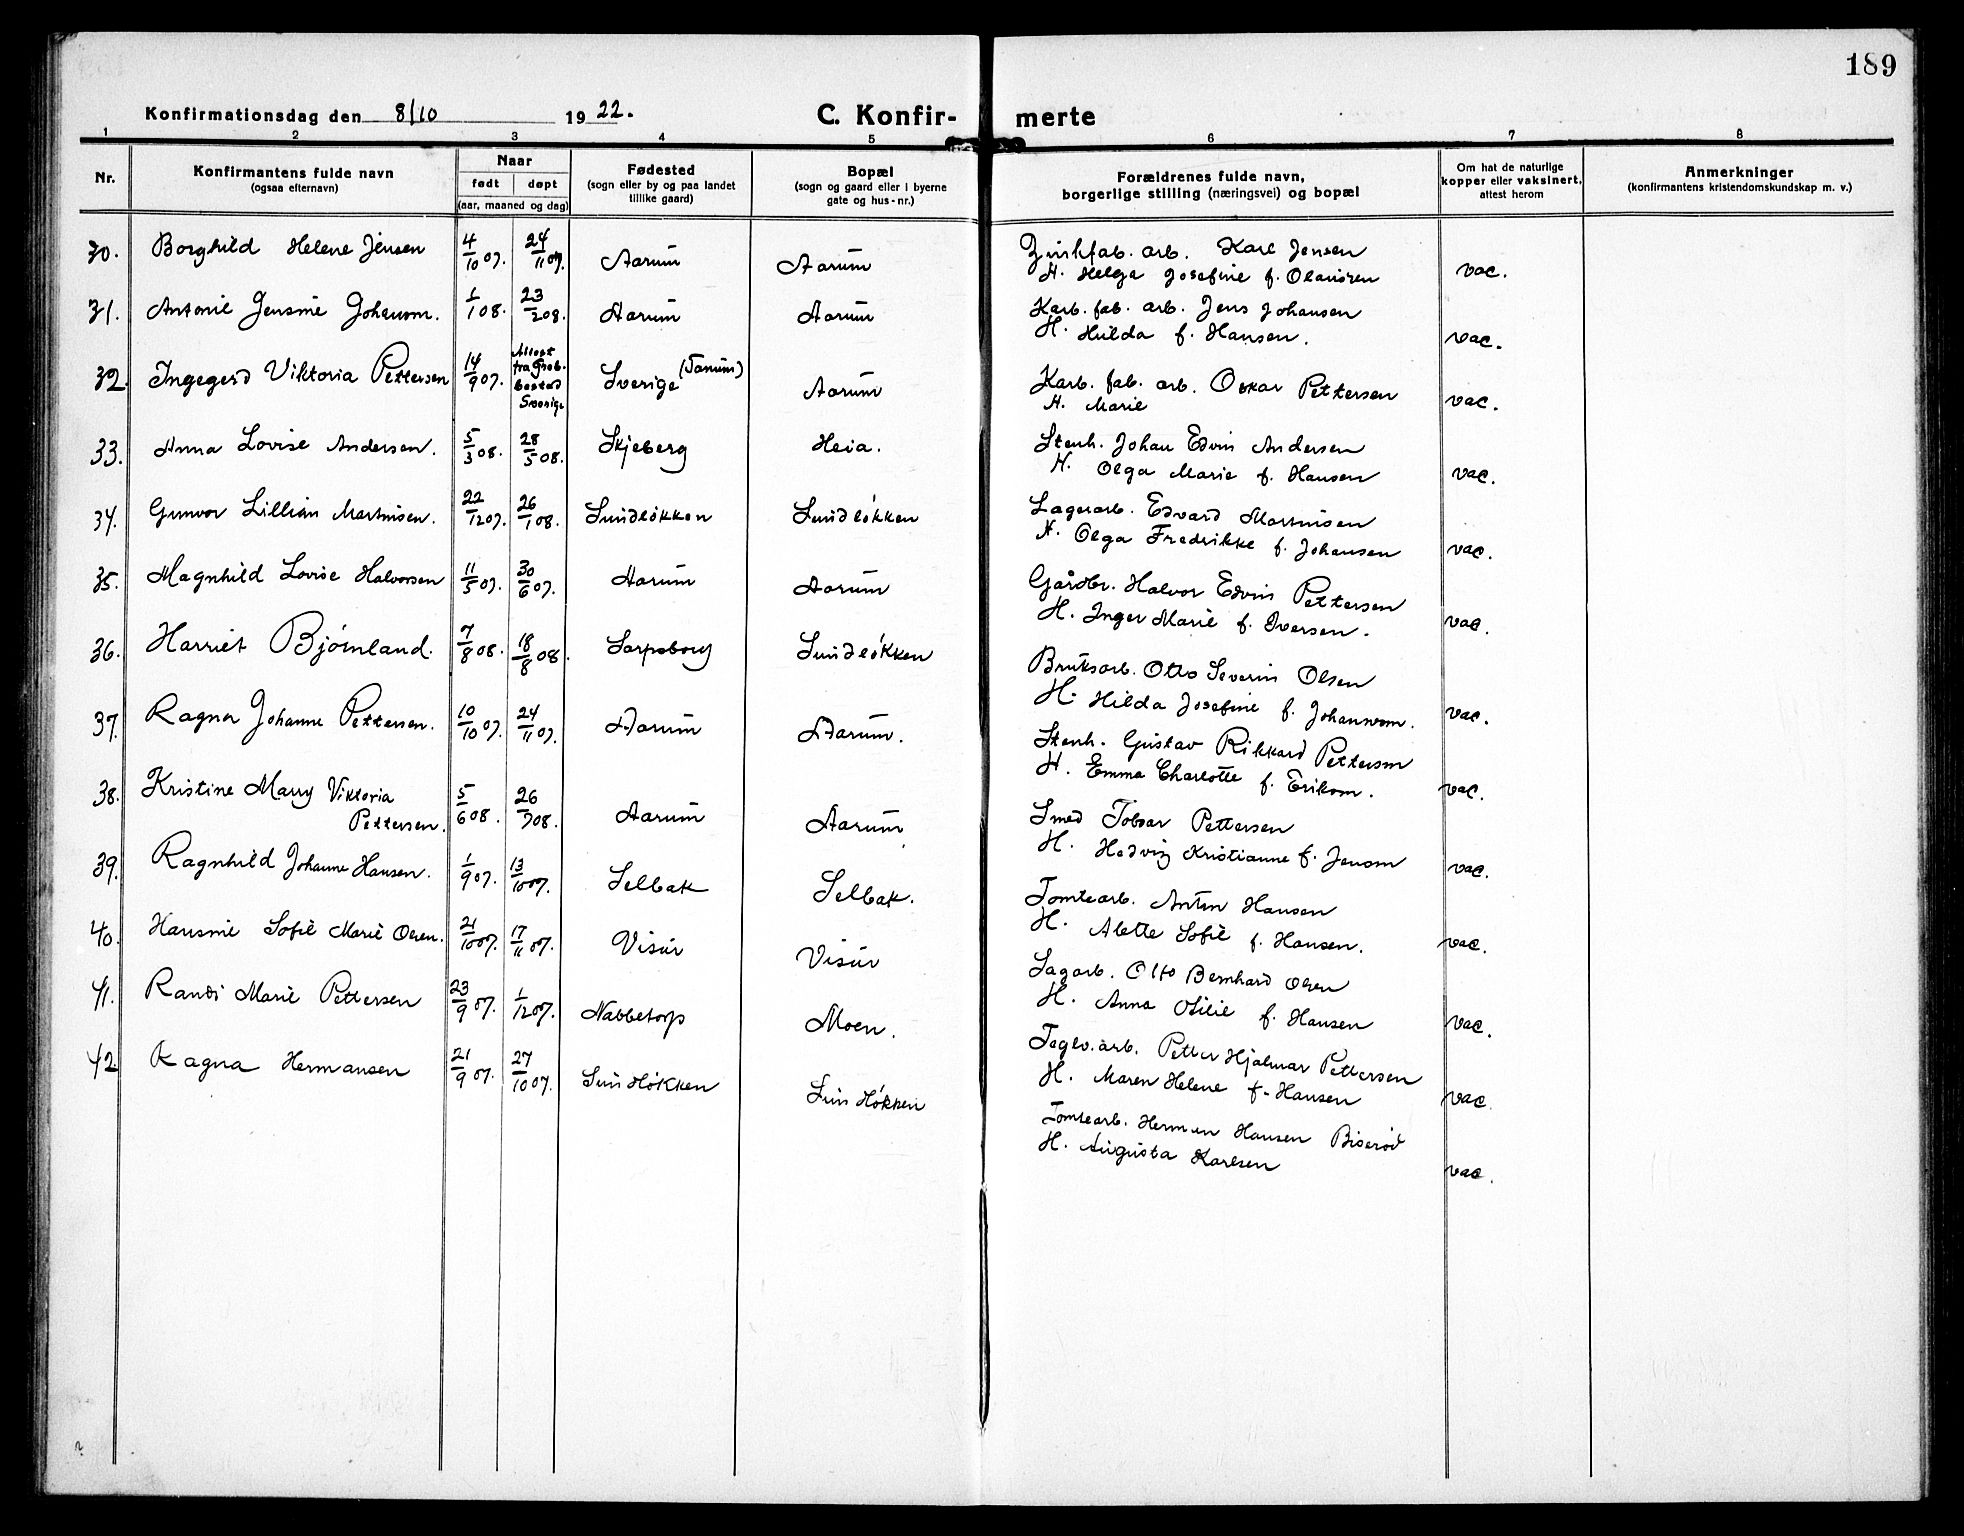 189
Konfirmationsdag den 8/10 1922.
C. Konfir- merte
1 2 3 4 5 6 7 8
Nr.
Konfirmantens fulde navn
(ogsaa efternavn)
Naar
født døpt
(aar, maaned og dag)
Fødested
(sogn eller by og paa landet
tillike gaard)
Bopæl
(sogn og gaard eller i byerne
gate og hus-nr.)
Forældrenes fulde navn,
borgerlige stilling (næringsvei) og bopæl
Om hat de naturlige
kopper eller vaksinert,
attest herom
Anmerkninger
(konfirmantens kristendomskundskap m. v.)
30. Borghild Helene Jensen 4/10 07. 24/11 07. Aarum Aarum
Zinkfab. arb. Karl Jensen
H. Helga Josefine f. vac.
31. Antonie Jensine Johansen. 1/1 08. 23/2 08. Aarum Aarum
Karb. fab. arb. Jens Johansen
H. Hulda f. Hansen. vac.
32. Ingegerd Viktoria Pettersen 14/9 07. Attest fra Greb-bestad Sverige Sverige (Tanum) Aarum
Karb. fab. arb. Oskar Pettersen
H. Marie vac.
33. Anna Lovise Andersen. 5/3 08. 28/5 08. Skjeberg Heia.
Stenh. Johan Edvin Andersen
H. Olga Marie f. Hansen vac.
34. Gunvor Lillian Martinsen. 22/12 07. 26/1 08. Sundløkken Sundløkken
Lagerarb. Edvard Martinsen
H. Olga Fredrikke f. Johansen vac.
35. Magnhild Lovise Halvorsen 11/5 07. 30/6 07. Aarum Aarum
Gårdbr. Halvor Edvin Pettersen
H. Inger Marie f. Iversen. vac.
36. Harriet Bjørnland. 7/8 08. 18/8 08. Sarpsborg Sundløkken
Bruksarb. Otto Severin Olsen
H. Hilda Josefine f. Johannesen. vac.
37. Ragna Johanne Pettersen. 10/10 07. 24/11 07. Aarum Aarum.
Stenh. Gustav Rikkard Pettersen
H. Emma Charlotte f. Eriksen. vac.
38. Kristine Marry Viktoria
Pettersen. 5/6 08. 26/7 08. Aarum Aarum
Smed Pettersen
H. Hedvig Kristianne f. Jensen vac.
39. Ragnhild Johanne Hansen. 1/9 07. 13/10 07. Selbak Selbak.
Tomtearb. Anton Hansen
H. Alette Sofie f. Hansen. vac.
40. Hansine Sofie Marie Olsen. 21/10 07. 17/11 07. Visur Visur
Sagarb. Otto Bernhard Olsen
H. Anna Otilie f. Hansen vac.
41. Randi Marie Pettersen 23/9 07. 1/12 07. Nabbetorp Moen.
Teglv. arb. Petter Hjalmar Pettersen
H. Maren Helene f. Hansen vac.
42 Ragna Hermansen 21/9 07. 27/10 07. Sundløkken Sundløkken
Tomtearb. Herman Hansen Biserød
H. Augusta Karlsen vac.